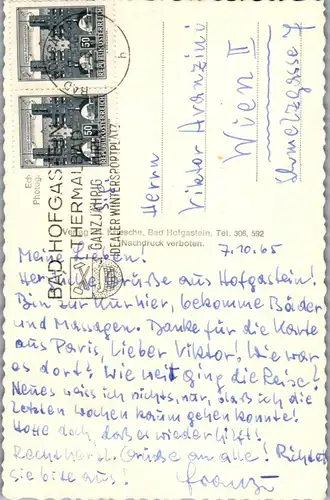 REPUBLIK ÖSTERREICH
50
REPUBLIK ÖSTERREICH
50
BAD HOFGASTEIN
THERMALBAD
GANZJÄHRIG
IDEALER WINTERSPORTPLATZ
Herrn
Viktor Avanzini
Wien II
Schmelzgasse
Verlag Bad Hofgastein, Tel. 306, 592
Nachdruck verboten.
7.10.65
Meine Lieben!
Herzliche Grüße aus Hofgastein!
Bin zur Kur hier, bekomme Bäder
und Massagen. Danke für die Karte
aus Paris, lieber Viktor! Wie war
es dort? Wie weit ging die Reise?
Neues weiss ich nichts, nur, daß ich die
letzten Wochen kaum gehen konnte!
Hoffe doch, daß es wieder hilft!
Recht herzl. Grüße an alle! Richten
Sie bitte aus!